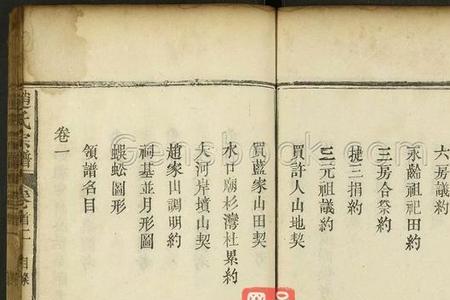 六房議約
永齡祖祀田約
三房合祭約
捷三捐約
三元祖議約
買許人山地契
買藍家山田契
水口廟杉灣杜累約
大河岸墳山契
趙家山調明約
祠基並月形圖
蜈蚣圖形
領譜名目
卷一
趙氏宗譜
卷首二
目條
Gensbook.com